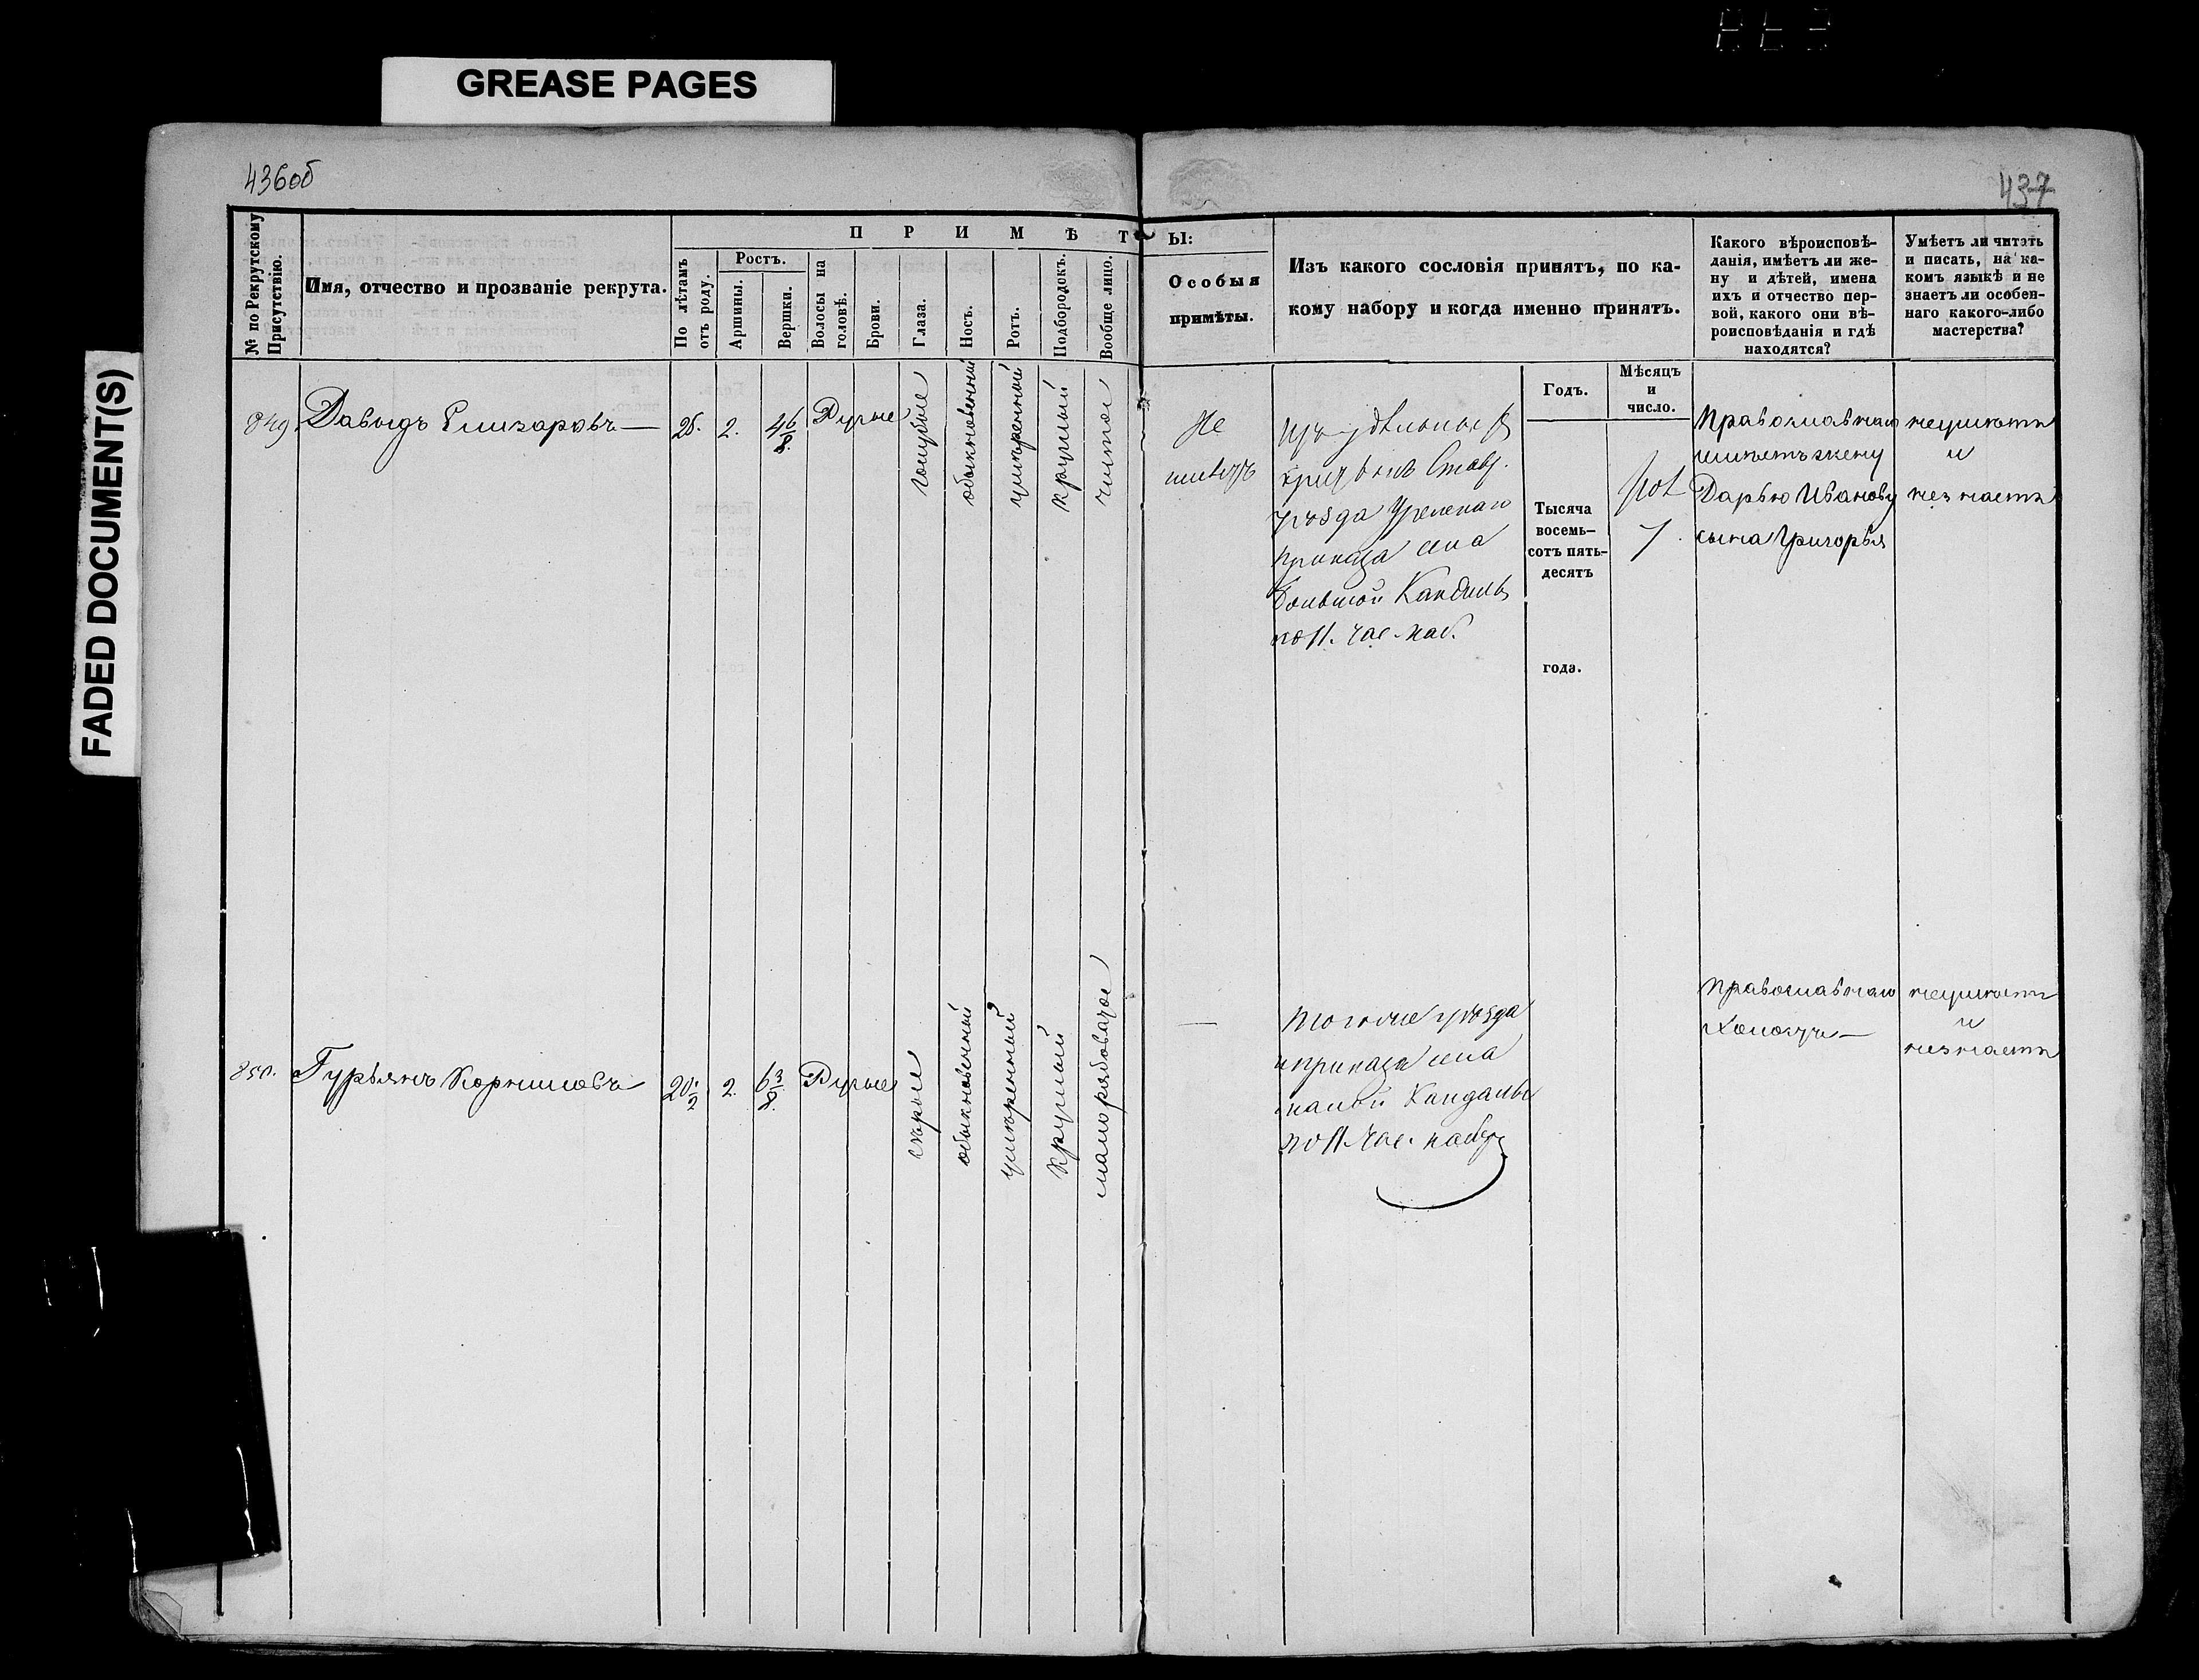 GREASE PAGES
FADED DOCUMENT(S)
436об
437
№ по Рекрутскому Присутствію.
Имя, отчество и прозваніе рекрута.
П Р И М Ѣ Т Ы:
По лѣтамъ отъ роду.
Ростъ.
Аршины.
Вершки.
Волосы на головѣ.
Брови.
Глаза.
Носъ.
Ротъ.
Подбородокъ.
Вообще лицо.
Особыя
примѣты.
Изъ какого сословія принятъ, по ка-
кому набору и когда именно принятъ.
Какого вѣроисповѣ-
данія, имѣетъ ли же-
ну и дѣтей, имена
ихъ и отчество пер-
вой, какого они вѣ-
роисповѣданія и гдѣ
находятся?
Умѣетъ ли читать
и писать, на ка-
комъ языкѣ и не
знаетъ ли особен-
наго какого-либо
мастерства?
Годъ.
Мѣсяцъ
и
число.
Тысяча
восемь-
сотъ пять-
десятъ
года.
849
Давыдъ Елизаровъ
2.
4 6/8.
Русые
голубые
обыкновенный
умѣренный
круглый
чистое
Не
имѣетъ
Изъ удѣльныхъ
крестьянъ Став.
уѣзда
приказа села
Большой Кандалы
по 11. час. наб.
7.
Православнаго
имѣетъ жену
Дарью Иванову
сына Григорья
неумѣетъ
и
незнаетъ
850.
Гурьянъ Корниловъ
20 1/2
2.
6 3/8.
Русые
сѣрые
обыкновенный
умѣренный
круглый
мало рябоватое
Тогоже уѣзда
и приказа села
малой Кандалы
по 11. час. набору
Православнаго
Холостъ
неумѣетъ
и
незнаетъ